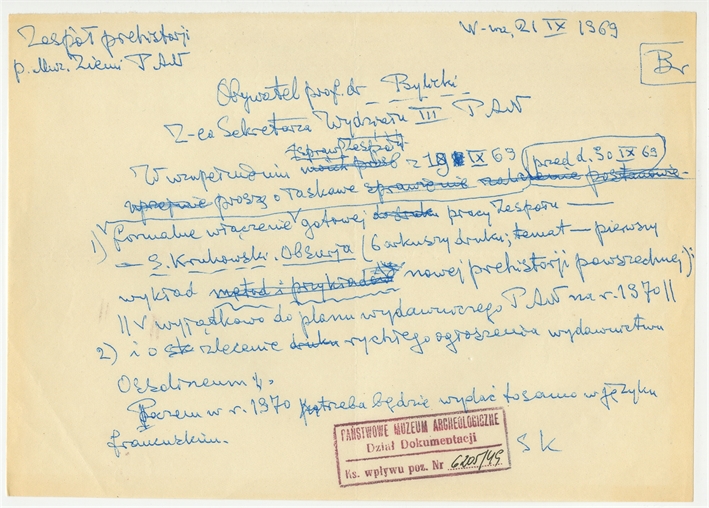 Zespół prehistorji
p. Muz. Ziemi PAN
W-wa, 21 IX 1969
Br
Obywatel prof. dr Bylicki
Z-ca Sekretarza Wydziału III PAN
spraw Zespołu
W uzupełnieniu moich z 18 IX 69 przed d. 30 IX 69
uprzejmie proszę o łaskawe
1) formalne włączenie gotowej do druku pracy Zespołu —
— S. Krukowski. Obsurja (6 arkuszy druku; temat — pierwszy
wykład metod i przykładów nowej prehistorji powszechnej);
|| wyjątkowo do planu wydawniczego PAN na r. 1970 ||
2) i o zlecenie druku rychłego ogłoszenia wydawnictwu
Ossolineum.
Razem w r. 1970 trzeba będzie wydać to samo w języku
francuskim.
SK
PAŃSTWOWE MUZEUM ARCHEOLOGICZNE
Dział Dokumentacji
Ks. wpływu poz. Nr 6205/49